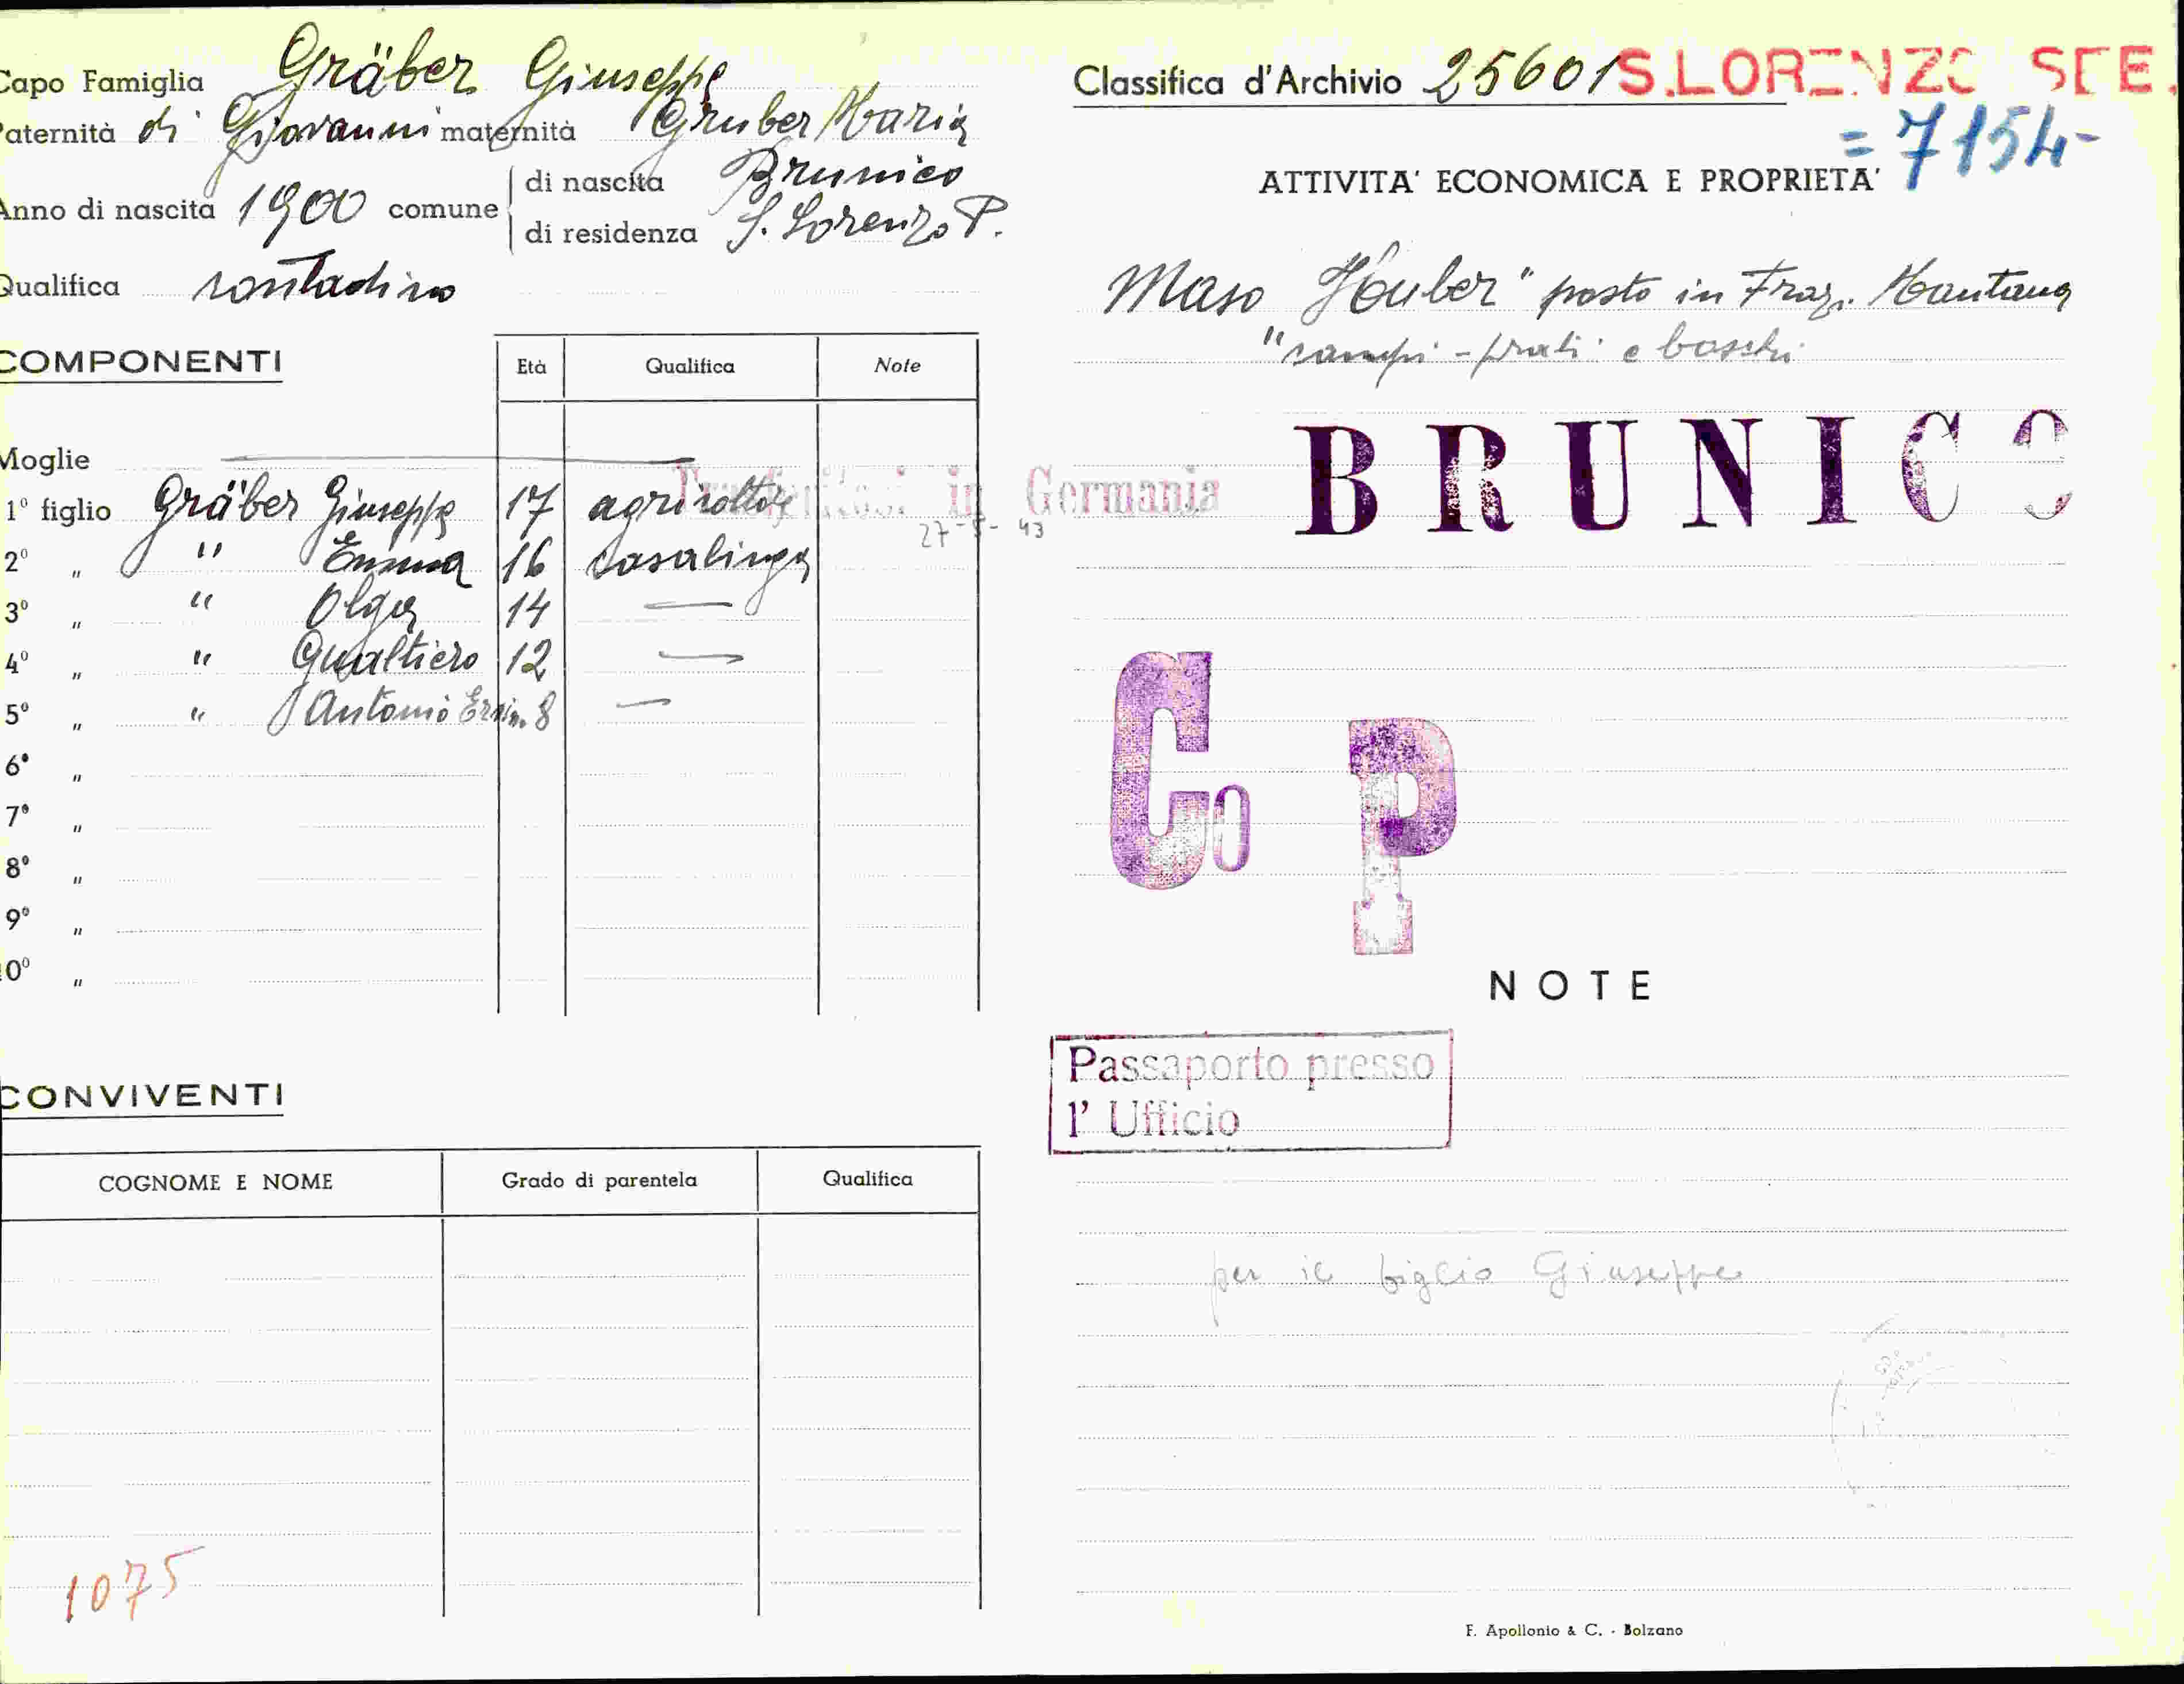 Capo Famiglia Gräber Giuseppe
Paternità di Giovanni maternità Gruber Maria
Anno di nascita 1900 comune di nascita Brunico
di residenza S. Lorenzo P.
Qualifica contadino
COMPONENTI Età Qualifica Note
Moglie
Trasferitosi in Germania
1º figlio Gräber Giuseppe 17 agricoltore
27-5-43
2º " " Emma 16 casalinga
3º " " Olga 14 —
4º " " Gualtiero 12 —
5º " " Antonio Erwin 8 —
6º "
7º "
8º "
9º "
10º "
CONVIVENTI
COGNOME E NOME Grado di parentela Qualifica
1075
Classifica d'Archivio 25601 S.LORENZO SEE.
=7154-
ATTIVITA' ECONOMICA E PROPRIETA'
Maso "Huber" posto in Fraz. Mantana
"campi - prati e boschi
BRUNICO
Co P
NOTE
Passaporto presso
l' Ufficio
per il figlio Giuseppe
F. Apollonio & C. - Bolzano